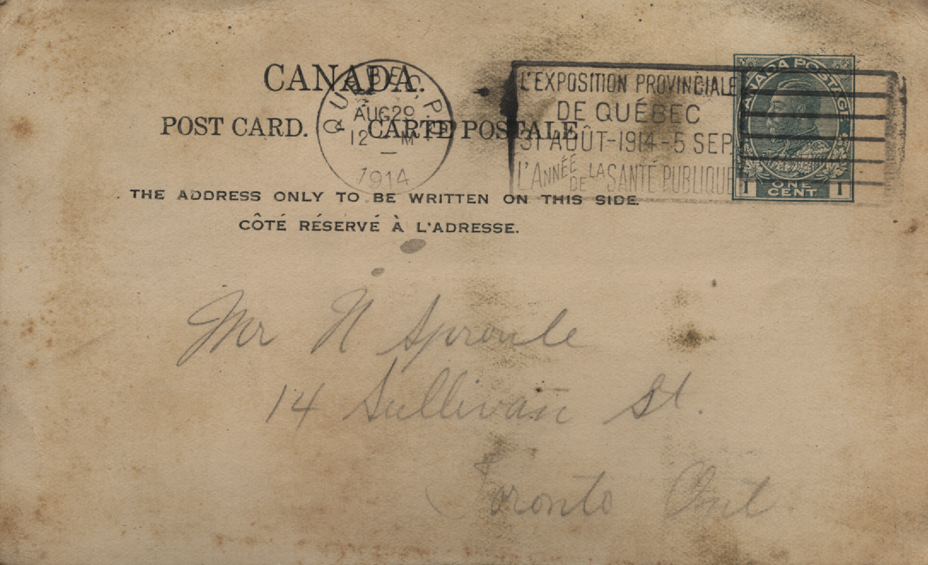 CANADA.
POST CARD. CARTE POSTALE
THE ADDRESS ONLY TO BE WRITTEN ON THIS SIDE
CÔTÉ RÉSERVÉ À L'ADRESSE.
QUEBEC, P.Q.
AUG 29
12 M
1914
L'EXPOSITION PROVINCIALE
DE QUÉBEC
31 AOÛT-1914-5 SEP
L'ANNÉE DE LA SANTÉ PUBLIQUE
CANADA POSTAGE
1 ONE CENT 1
Mr N Sproule
14 Sullivan St.
Toronto Ont.